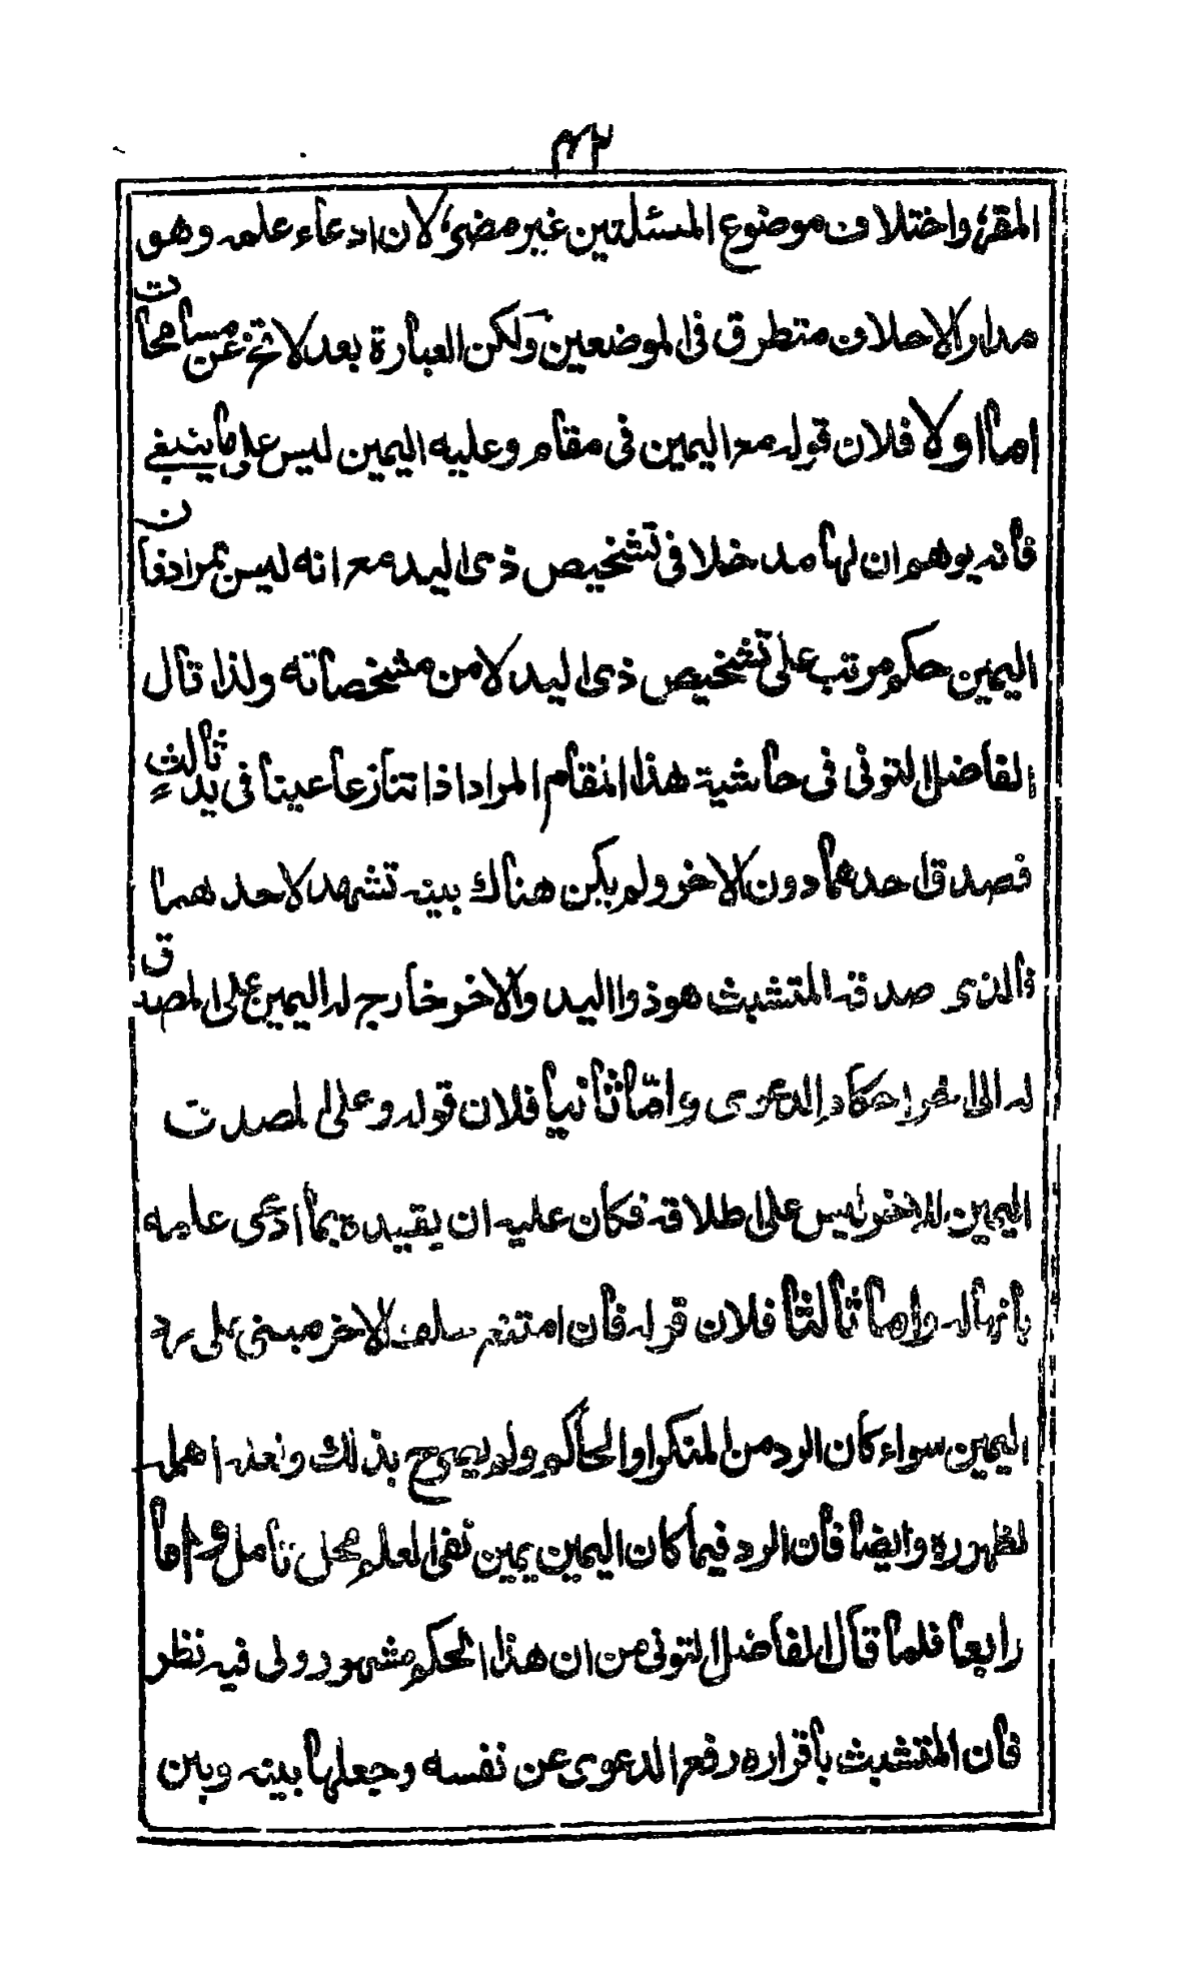 ٤٢
المقر واختلاف موضوع المسئلتين غير مضر لان ادعاء علمه وهو
مدار الاحلاف متطرق فى الموضعين ولكن العبارة بعد لا تخ عن مسامحات
اما اولا فلان قوله مع اليمين فى مقام وعليه اليمين ليس على ما ينبغى
فانه يوهم ان لها مدخلا فى تشخيص ذى اليد مع انه ليس بمراد فان
اليمين حكم مرتب على تشخيص ذى اليد لا من مشخصاته ولذا قال
الفاضل التونى فى حاشية هذا المقام المراد اذا تنازعا عينا فى يد ثالث
فصدق احدهما دون الاخر ولم يكن هناك بينه تشهد لاحدهما
فالذى صدقه المتشبث هو ذوا اليد والاخر خارج له اليمين على المصدق
له الى اخر احكام الدعوى واما ثانيا فلان قوله وعلى المصدق
اليمين للاخر ليس على اطلاقه فكان عليه ان يقيده بما ادعى علمه
بانها له واما ثالثا فلان قوله فان امتنع حلف الاخر مبنى على رد
اليمين سواء كان الرد من المنكر او الحاكم ولم يصرح بذلك ولعله اهمله
لظهوره وايضا فان الرد فيما كان اليمين يمين نفى العلم محل تامل واما
رابعا فلما قال الفاضل التونى من ان هذا الحكم مشهور ولى فيه نظر
فان المتشبث باقراره رفع الدعوى عن نفسه وجعلها بينه وبين